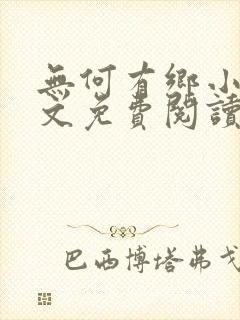 無何有鄉小
文免費閱讀
巴西博塔弗戈